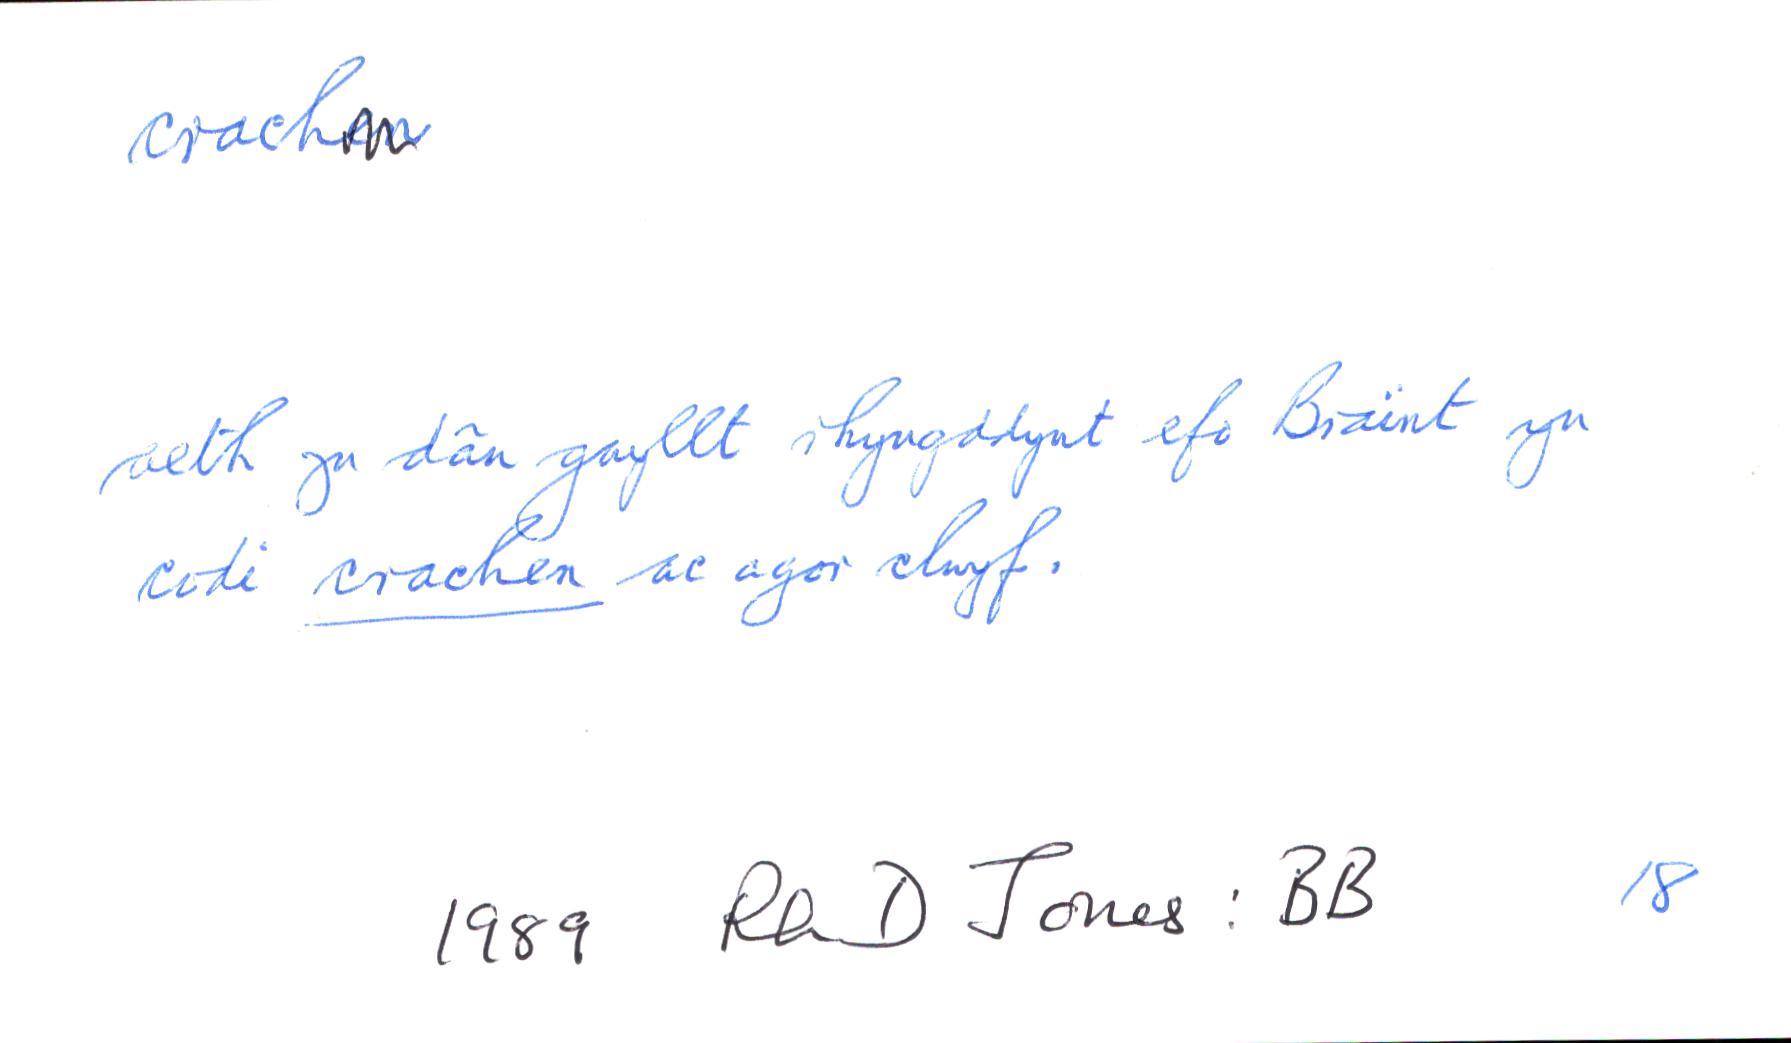 crachen
aeth yn dân gwyllt rhyngddynt efo Bräint yn
codi crachen ac agor clwyf.
1989 Rh D Jones: BB 18